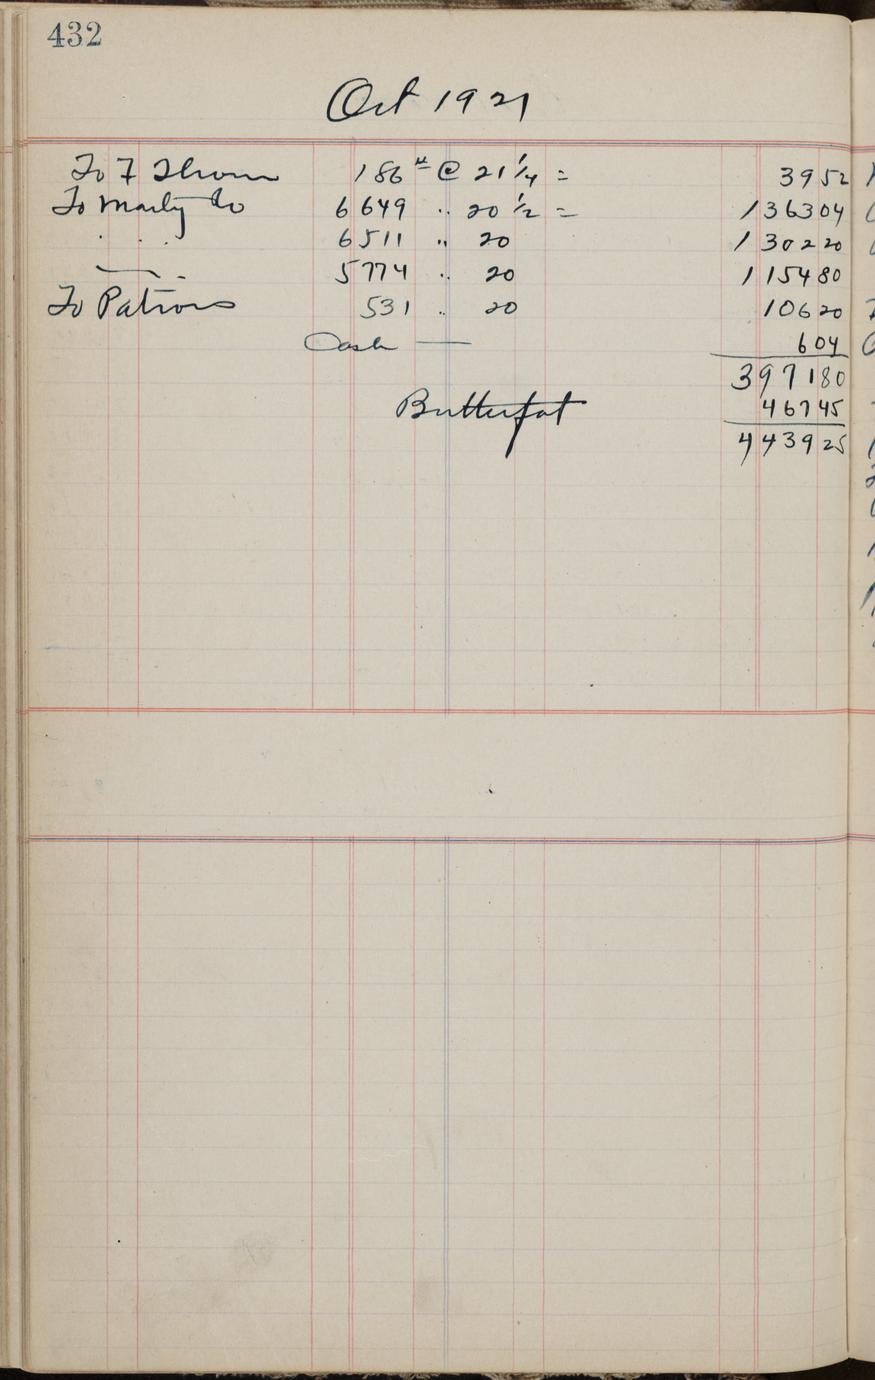 432
Oct 1921
To F Thom 186 # @ 21 1/4 = 3952
To Marty Co 6649 " 20 1/2 = 136304
" " 6511 " 20 130220
5774 " 20 115480
To Patrons 531 " 20 10620
Cash — 604
397180
Butterfat 46745
443925